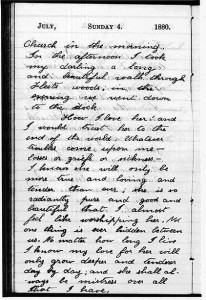 JULY, SUNDAY 4. 1880.
Church in the morning.
In the afternoon I took
my darling a long
and beautiful walk through
Fleets woods; in the
evening we went down
to the dock.
How I love her! and
I would trust her to the
end of the world. Whatever
troubles come upon me
loss or grief or sickness -
I know she will only be
more true and loving and
tender than ever; she is so
radiantly pure and good and
beautiful that I almost
feel like worshipping her. Not
one thing is ever hidden between
us. No matter how long I live
I know my love for her will
only grow deeper and tenderer
day by day; and she shall al-
ways be mistress over all
that I have.